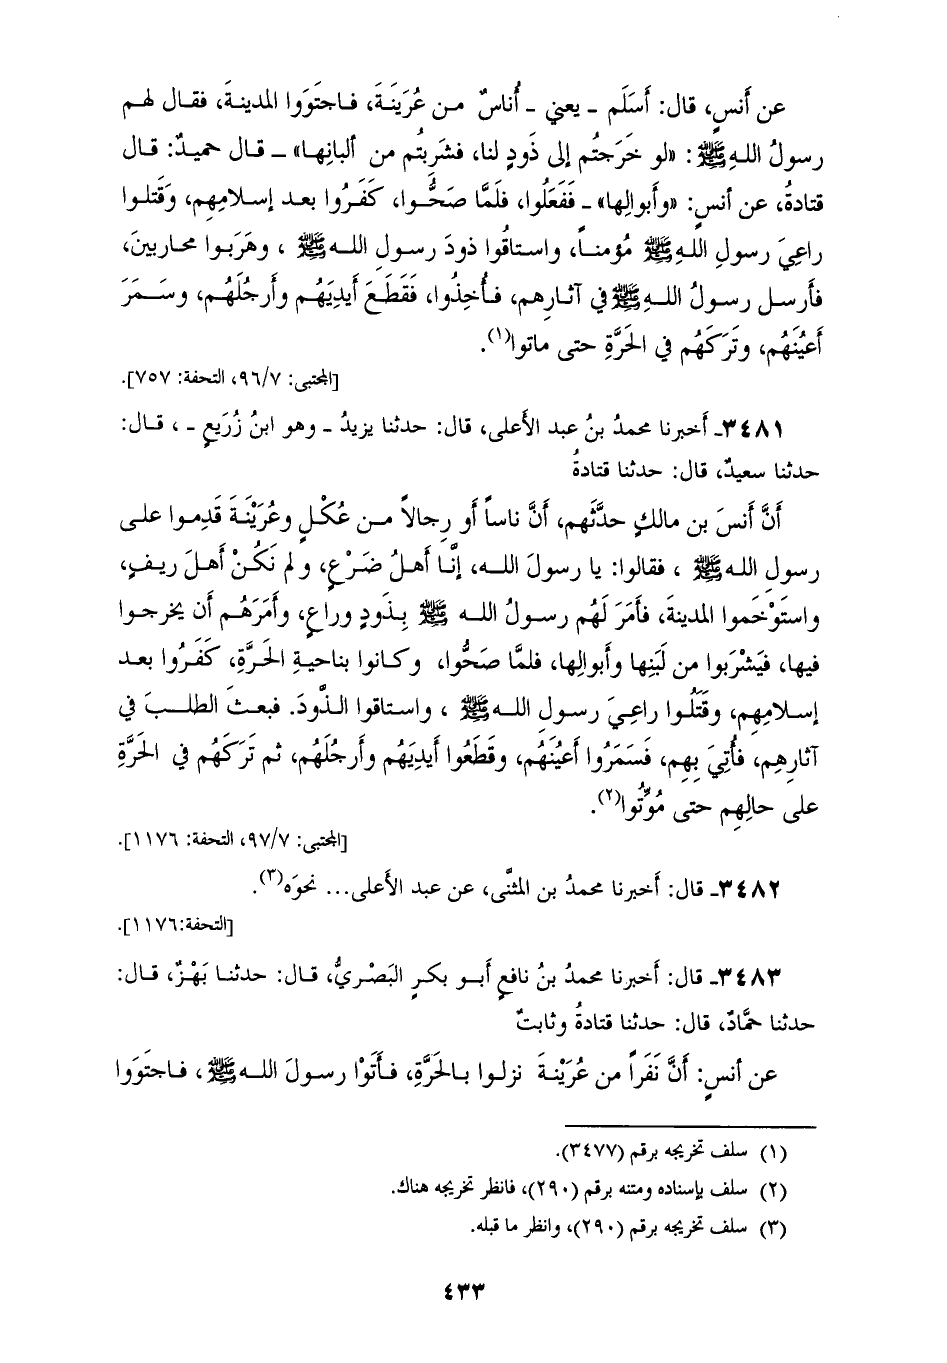 عن أنسٍ، قال: أَسلَم - يعني - أُناسٌ من عُرَينَةَ، فاجتَوَوا المدينةَ، فقال لهم
رسولُ اللهِ ﷺ: «لو خرَجتُم إلى ذَودٍ لنا، فشَرِبتُم من ألبانِها» - قال حميدٌ: قال
قتادةُ، عن أنسٍ: «وأبوالِها» - ففَعَلُوا، فلَمَّا صَحُّوا، كَفَرُوا بعد إسلامِهم، وقَتلوا
راعِيَ رسولِ اللهِ ﷺ مُؤمناً، واستاقُوا ذودَ رسولِ اللـه ﷺ ، وهَرَبوا محاربينَ،
فأرسل رسولُ اللـهِ ﷺ في آثارِهم، فأُخِذُوا، فَقَطَعَ أيدِيَهُم وأرجُلَهُم، وسَمَرَ
أعيُنَهُم، وتَرَكَهُم في الحَرَّةِ حتى ماتوا(١).
[المجتبى: ٩٦/٧، التحفة: ٧٥٧].
٣٤٨١ـ أخبرنا محمدُ بنُ عبد الأعلى، قال: حدثنا يزيدُ - وهو ابنُ زُرَيعٍ - ، قال:
حدثنا سعيدٌ، قال: حدثنا قتادةُ
أنَّ أنسَ بن مالكٍ حدَّثَهم، أنَّ ناساً أو رِجالاً من عُكْلٍ وعُرَيْنَةَ قَدِموا على
رسولِ اللهِ ﷺ ، فقالوا: يا رسولَ اللـه، إنَّا أهلُ ضَرْعٍ، ولم نَكُنْ أهلَ ريفٍ،
واستَوْخَموا المدينةَ، فأمَرَ لَهُم رسولُ اللـه ﷺ بِذَودٍ وراعٍ، وأمَرَهُم أن يخرجوا
فيها، فيَشْرَبوا من لَبَنِها وأبوالِها، فلمَّا صَحُّوا، وكانوا بناحيةِ الحَرَّةِ، كَفَرُوا بعد
إسلامِهِم، وقَتَلُوا راعِيَ رسولِ اللـه ﷺ ، واستاقوا الذَّودَ. فبعثَ الطلـبَ في
آثارِهِم، فأُتِيَ بِهِم، فَسَمَرُوا أعيُنَهُم، وقَطَعُوا أيدِيَهُم وأرجُلَهُم، ثم تَرَكَهُم في الحَرَّةِ
على حالِهِم حتى مُوِّتُوا(٢).
[المجتبى: ٩٧/٧، التحفة: ١١٧٦].
٣٤٨٢ـ قال: أخبرنا محمدُ بن المثنَّى، عن عبد الأعلى... نحوَه(٣).
[التحفة:١١٧٦].
٣٤٨٣ـ قال: أخبرنا محمدُ بنُ نافعٍ أبو بكرٍ البَصْرِيُّ، قال: حدثنا بَهْزٌ، قال:
حدثنا حمَّادٌ، قال: حدثنا قتادةُ وثابتٌ
عن أنسٍ: أنَّ نَفَراً من عُرَيْنةَ نزلوا بالحَرَّةِ، فأتَوْا رسولَ اللـه ﷺ ، فاجتَوَوا
(١) سلف تخريجه برقم (٣٤٧٧).
(٢) سلف بإسناده ومتنه برقم (٢٩٠)، فانظر تخريجه هناك.
(٣) سلف تخريجه برقم (٢٩٠)، وانظر ما قبله.
٤٣٣